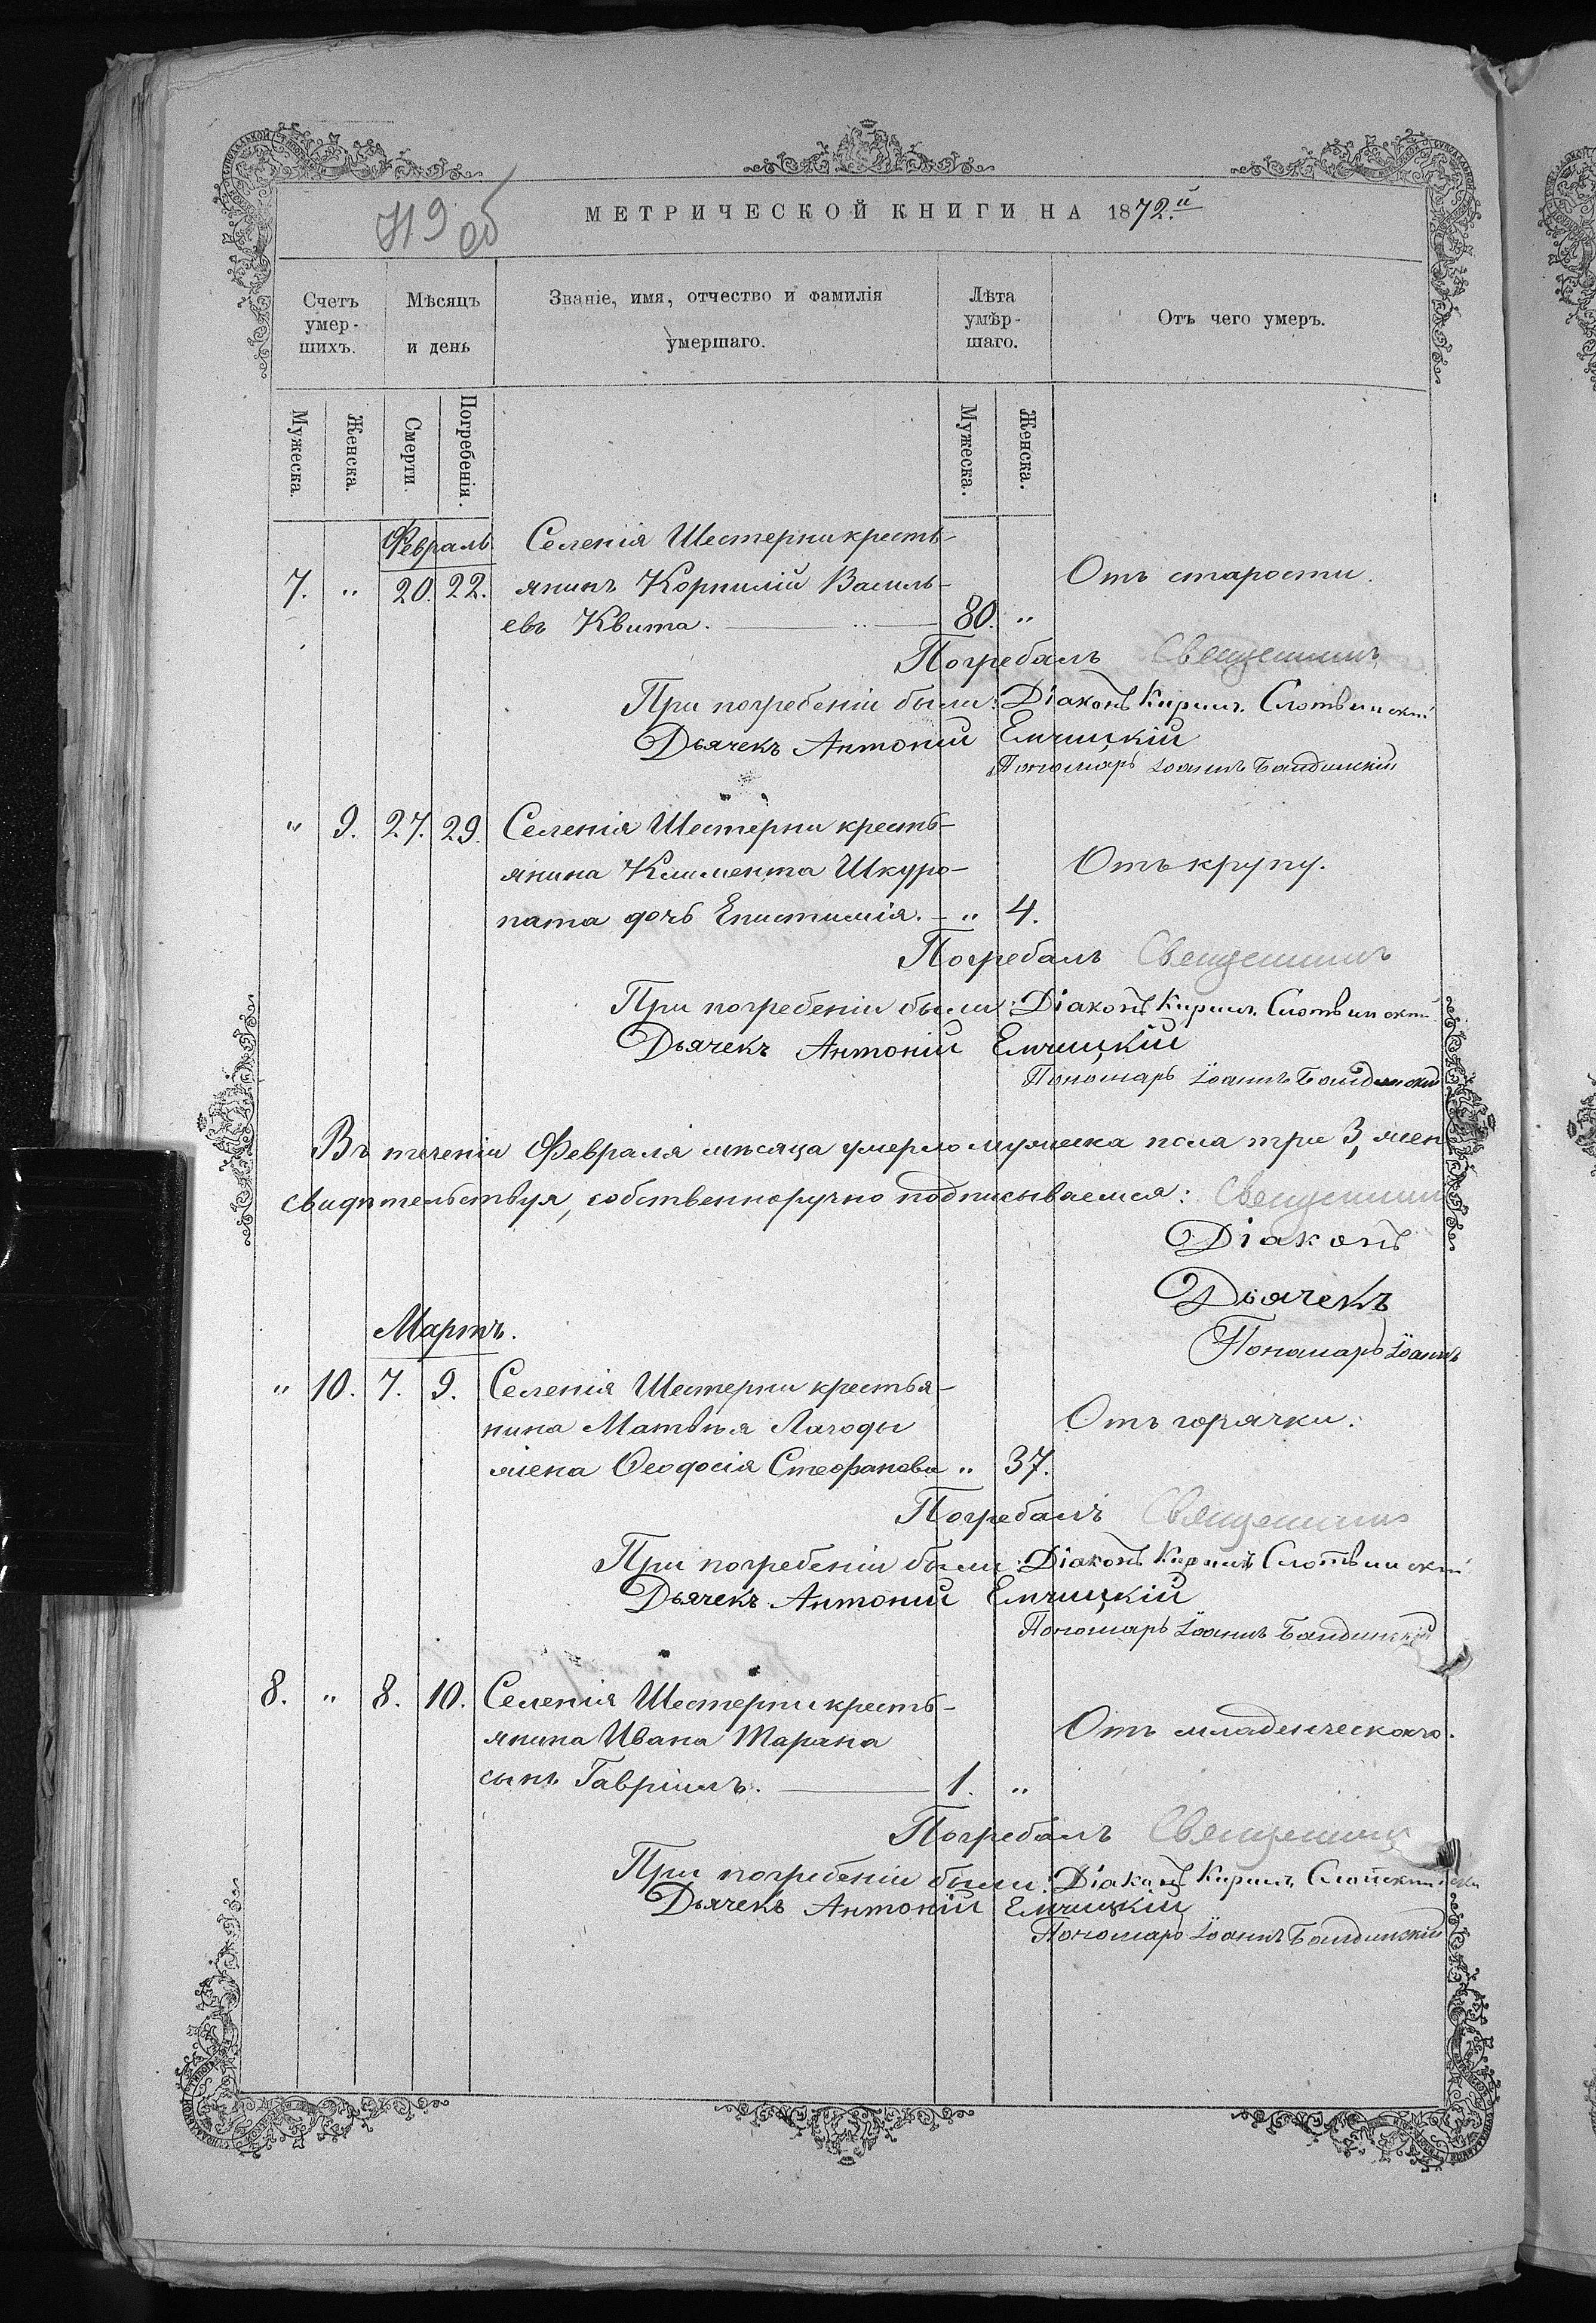 МЕТРИЧЕСКОЙ КНИГИ НА 1872.й
об
Счетъ умер-шихъ.
Мѣсяцъ и день
Званіе, имя, отчество и фамилія умершаго.
Лѣта умѣр-шаго.
Отъ чего умеръ.
Мужеска. Женска. Смерти. Погребенія. Мужеска. Женска.
Февраль Селенія Шестерни кресть-
7. " 20. 22. янинъ Корнилій Василь- Отъ старости.
евъ Квита. 80. "
Погребалъ Священникъ
При погребеніи были: Діаконъ Кирилъ Слотвинскій
Дьячекъ Антоній Емчицкій
Пономарь Іоаннъ
" 9. 27. 29. Селенія Шестерни кресть-
янина Климента Шкуро- Отъ крупу.
пата дочь Епистимія. - " 4.
Погребалъ Священникъ
При погребеніи были: Діаконъ Кирилъ Слотвинскій
Дьячекъ Антоній Емчицкій
Пономарь Іоаннъ
Въ теченіи Февраля мѣсяца умерло мужеска пола три 3, жен
свидѣтельствуя, собственноручно подписываемся: Священник
Діаконъ
Дьячекъ
Пономарь Іоаннъ
Мартъ.
" 10. 7. 9. Селенія Шестерни крестья-
нина Матвѣя Лагоды Отъ горячки.
жена Ѳеодосія Стефанова " 37.
Погребалъ Священникъ
При погребеніи были: Діаконъ Кирилъ Слотвинскій
Дьячекъ Антоній Емчицкій
Пономарь Іоаннъ
8. " 8. 10. Селенія Шестерни кресть-
янина Ивана Тарана Отъ младенческаго.
сынъ Гавріилъ. 1. "
Погребалъ Священникъ
При погребеніи были: Діаконъ Кирилъ
Дьячекъ Антоній Емчицкій
Пономарь Іоаннъ